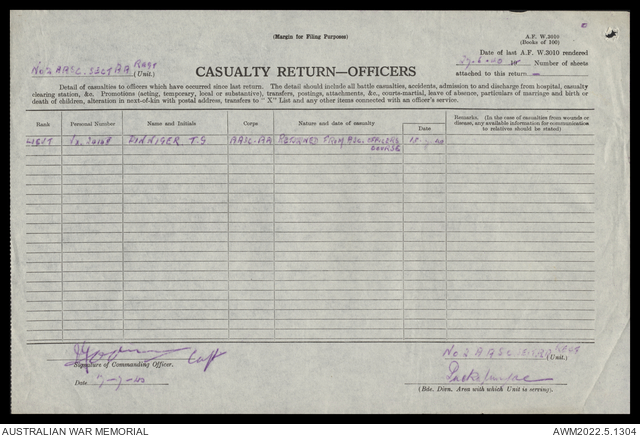 (Margin for Filing Purposes)
A.F. W.3010
(Books of 100)
Date of last A.F. W.3010 rendered
Number of sheets
attached to this return
No 2 AASC. (Unit.)
CASUALTY RETURN—OFFICERS
Detail of casualties to officers which have occurred since last return. The detail should include all battle casualties, accidents, admission to and discharge from hospital, casualty
clearing station, &c. Promotions (acting, temporary, local or substantive), transfers, postings, attachments, &c., courts-martial, leave of absence, particulars of marriage and birth or
death of children, alteration in next-of-kin with postal address, transfers to "X" List and any other items connected with an officer's service.
Rank
Personal Number
Name and Initials
Corps.
Nature and date of casualty
Date
Remarks. (In the case of casualties from wounds or
disease, any available information for communication
to relatives should be stated)
LIEUT
AASC-AA
RETURNED FROM OFFICERS
COURSE
Capt
Signature of Commanding Officer.
Date 7-7-40
No 2 AASC (Unit.)
(Bde. Divn. Area with which Unit is serving).
AUSTRALIAN WAR MEMORIAL
AWM2022.5.1304